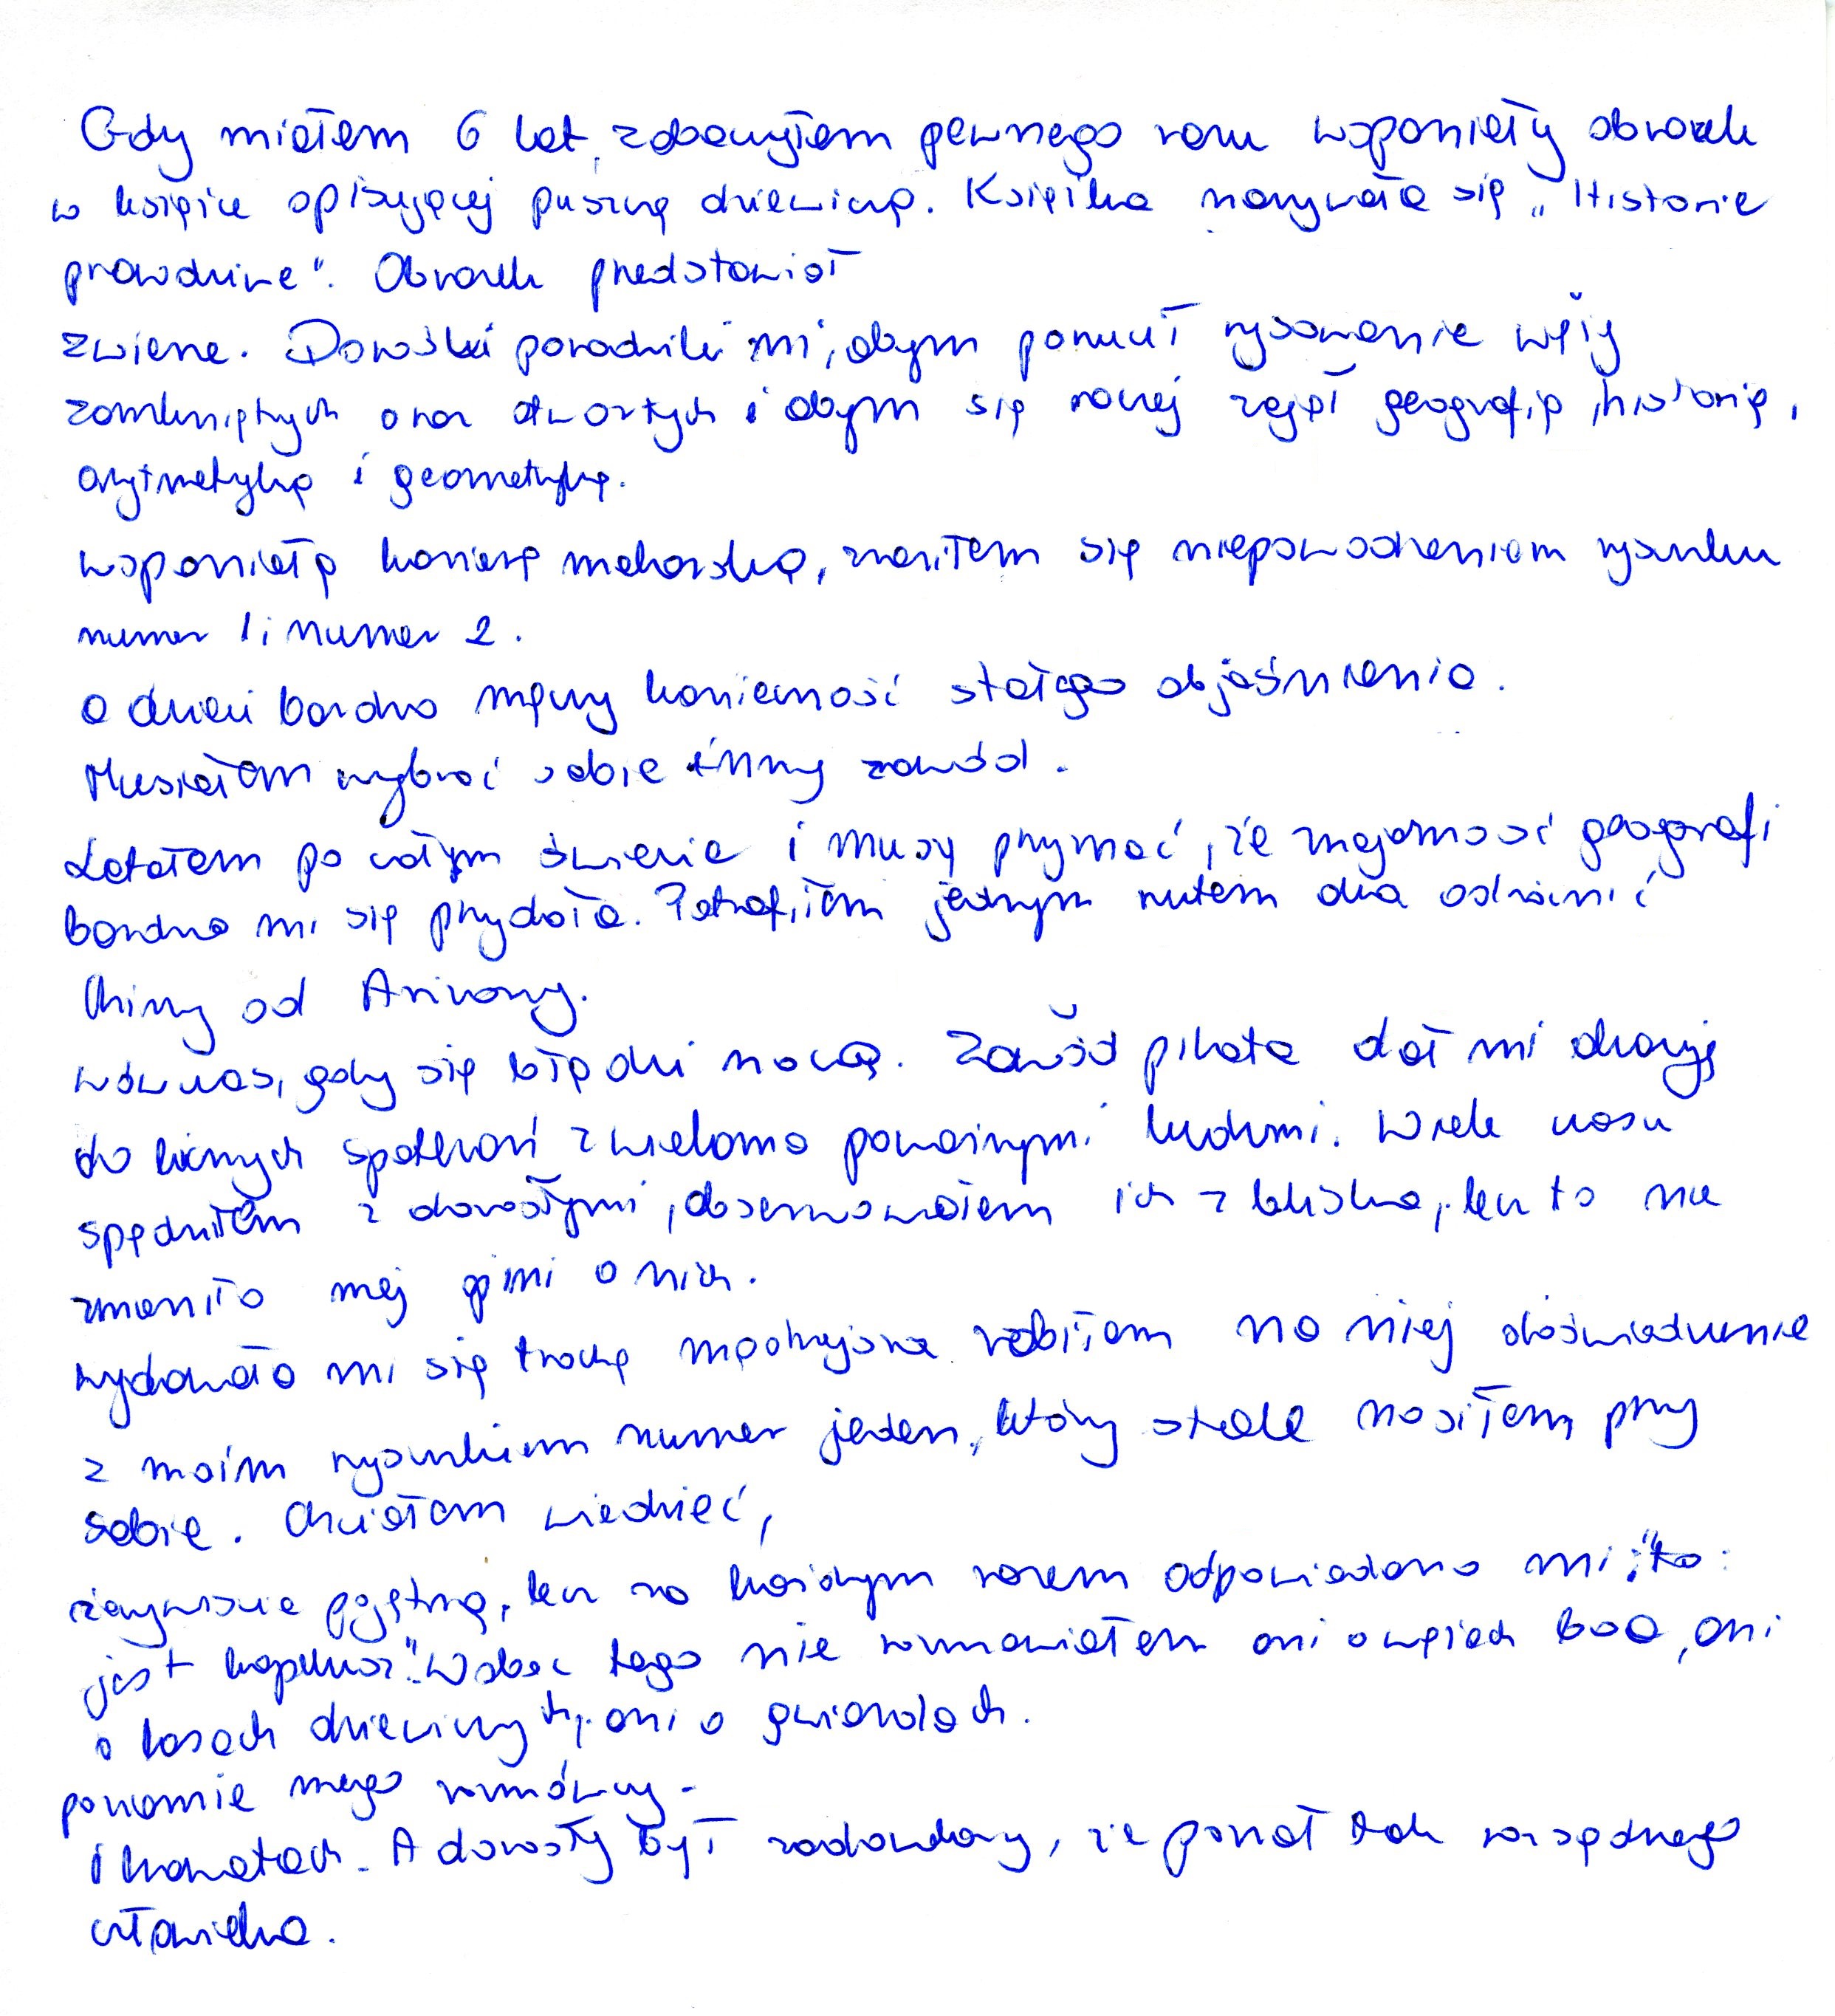 Gdy miałem 6 lat, zobaczyłem pewnego razu wspaniały obrazek
w książce opisującej puszczę dziewiczą. Książka nazywała się „Historie
prawdziwe". Obrazek przedstawiał
zwierzę. Dorośli poradzili mi, abym porzucił rysowanie węży
zamkniętych oraz otwartych i abym się raczej zajął geografią, historią,
arytmetyką i geometyką.
wspaniałą karierę malarską, zraziłem się niepowodzeniem rysunku
numer 1 i numer 2.
a dzieci bardzo męczy konieczność stałego objaśniania.
Musiałem wybrać sobie inny zawód.
Latałem po całym świecie i muszę przyznać, że znajomość geografi
bardzo mi się przydała. Potrafiłem jednym rzutem oka odróżnić
Chiny od Arizony.
wówczas, gdy się błądzi nocą. Zawód pilota dał mi okazję
do licznych spotkań z wieloma poważnymi ludźmi. Wiele czasu
spędziłem z dorosłymi, obserwowałem ich z bliska, lecz to nie
zmieniło mej opini o nich.
wydawała mi się trochę mądrzejsza robiłem na niej doświadczenie
z moim rysunkiem numer jeden, który stale nosiłem przy
sobie. Chciałem wiedzieć,
rzeczywiście pojętną, lecz za każdym razem odpowiadano mi: "to
jest kapelusz". Wobec tego nie rozmawiałem ani o wężach boa, ani
o lasach dziewiczych, ani o gwiazdach.
poziomie mego rozmówcy.
i krawatach. A dorosły był zadowolony, że poznał tak rozsądnego
człowieka.